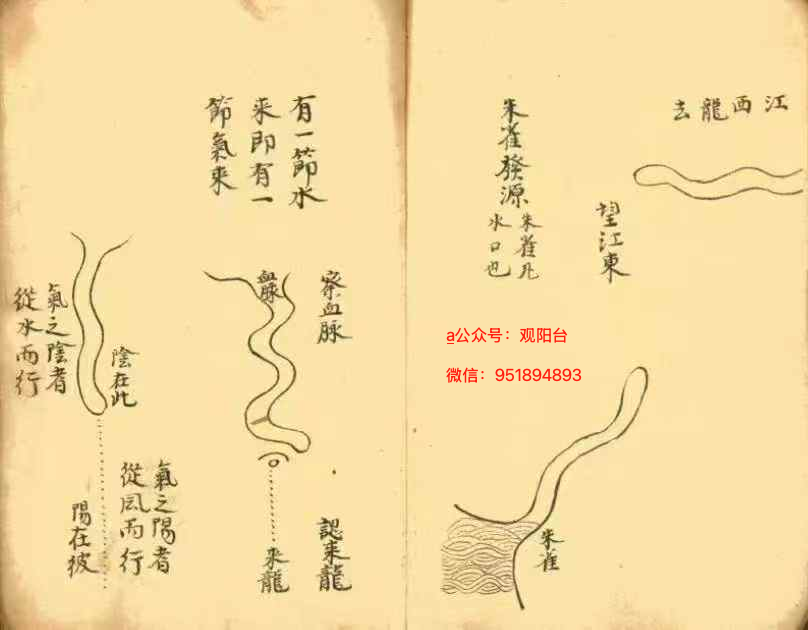 江西龍去
望江東
朱雀發源
朱雀
水口也
a公众号：观阳台
微信：951894893
朱雀
有一節水
來即有一
節氣來
察血脉
血脉
認來龍
來龍
陰在此
氣之陰者
從水而行
氣之陽者
從風而行
陽在彼